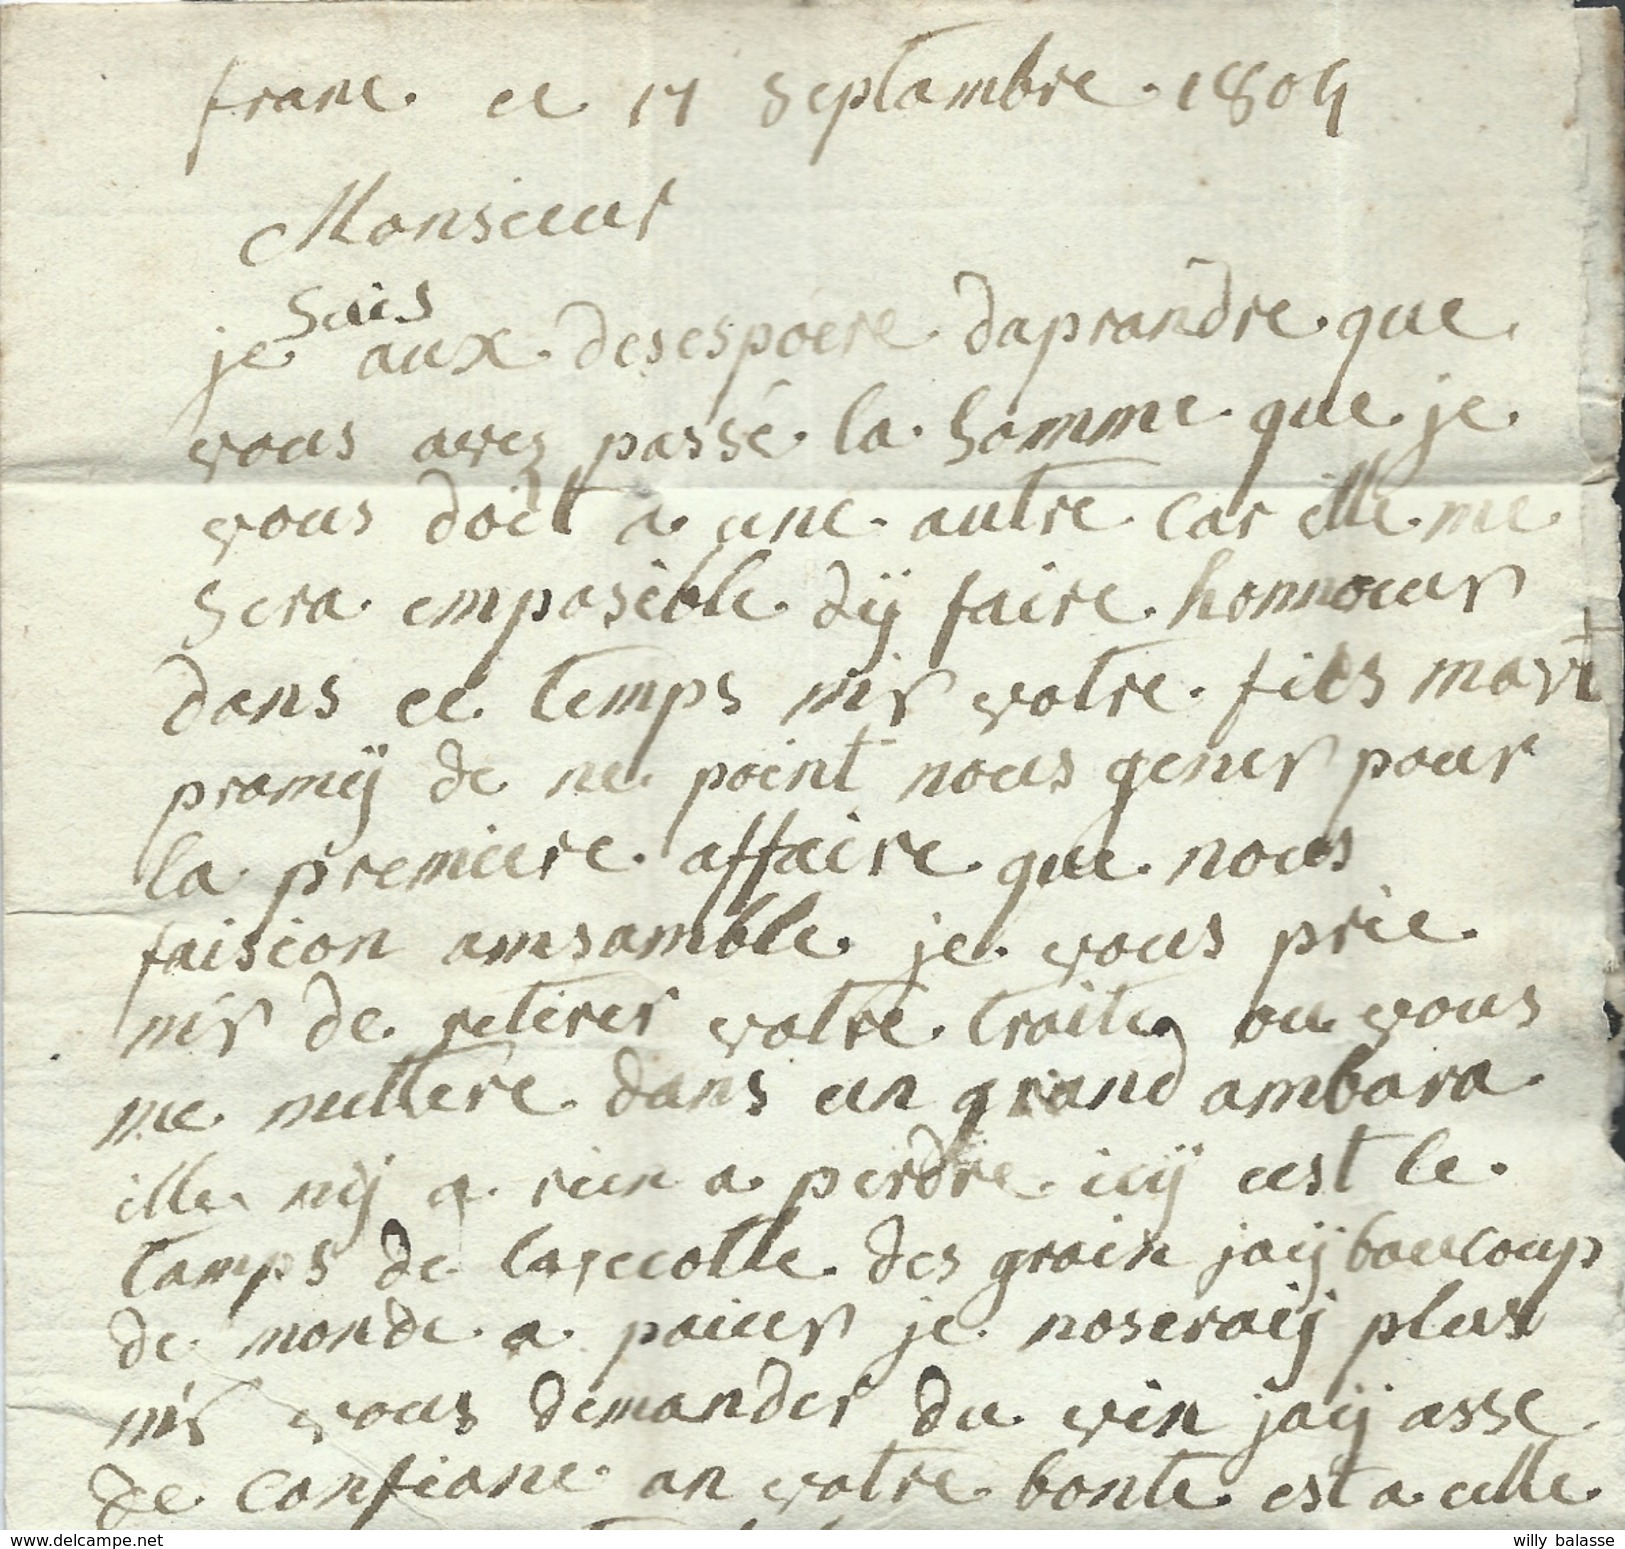 franc ce 17 Septambre 1804
Monsieur
Suis
je aux desespoere daprandre que
vous aves passé la Somme que je
vous doit a une autre car ille me
Sera emposible dÿ faire honnoeur
dans ce temps mr votre fils mavt
promÿ de ne point nous gener pour
la premiere affaire que nous
faision amsamble je vous prie
mr de retirer votre traite ou vous
me mettere dans un grand ambara
ille nÿ a rien a perdre icÿ cest le
tamps de la recolte des grain jaÿ baucoup
de monde a paier je noseraÿ plus
mr vous demander du vin jaÿ asse
de confianc an votre bonte est a celle
willy balasse